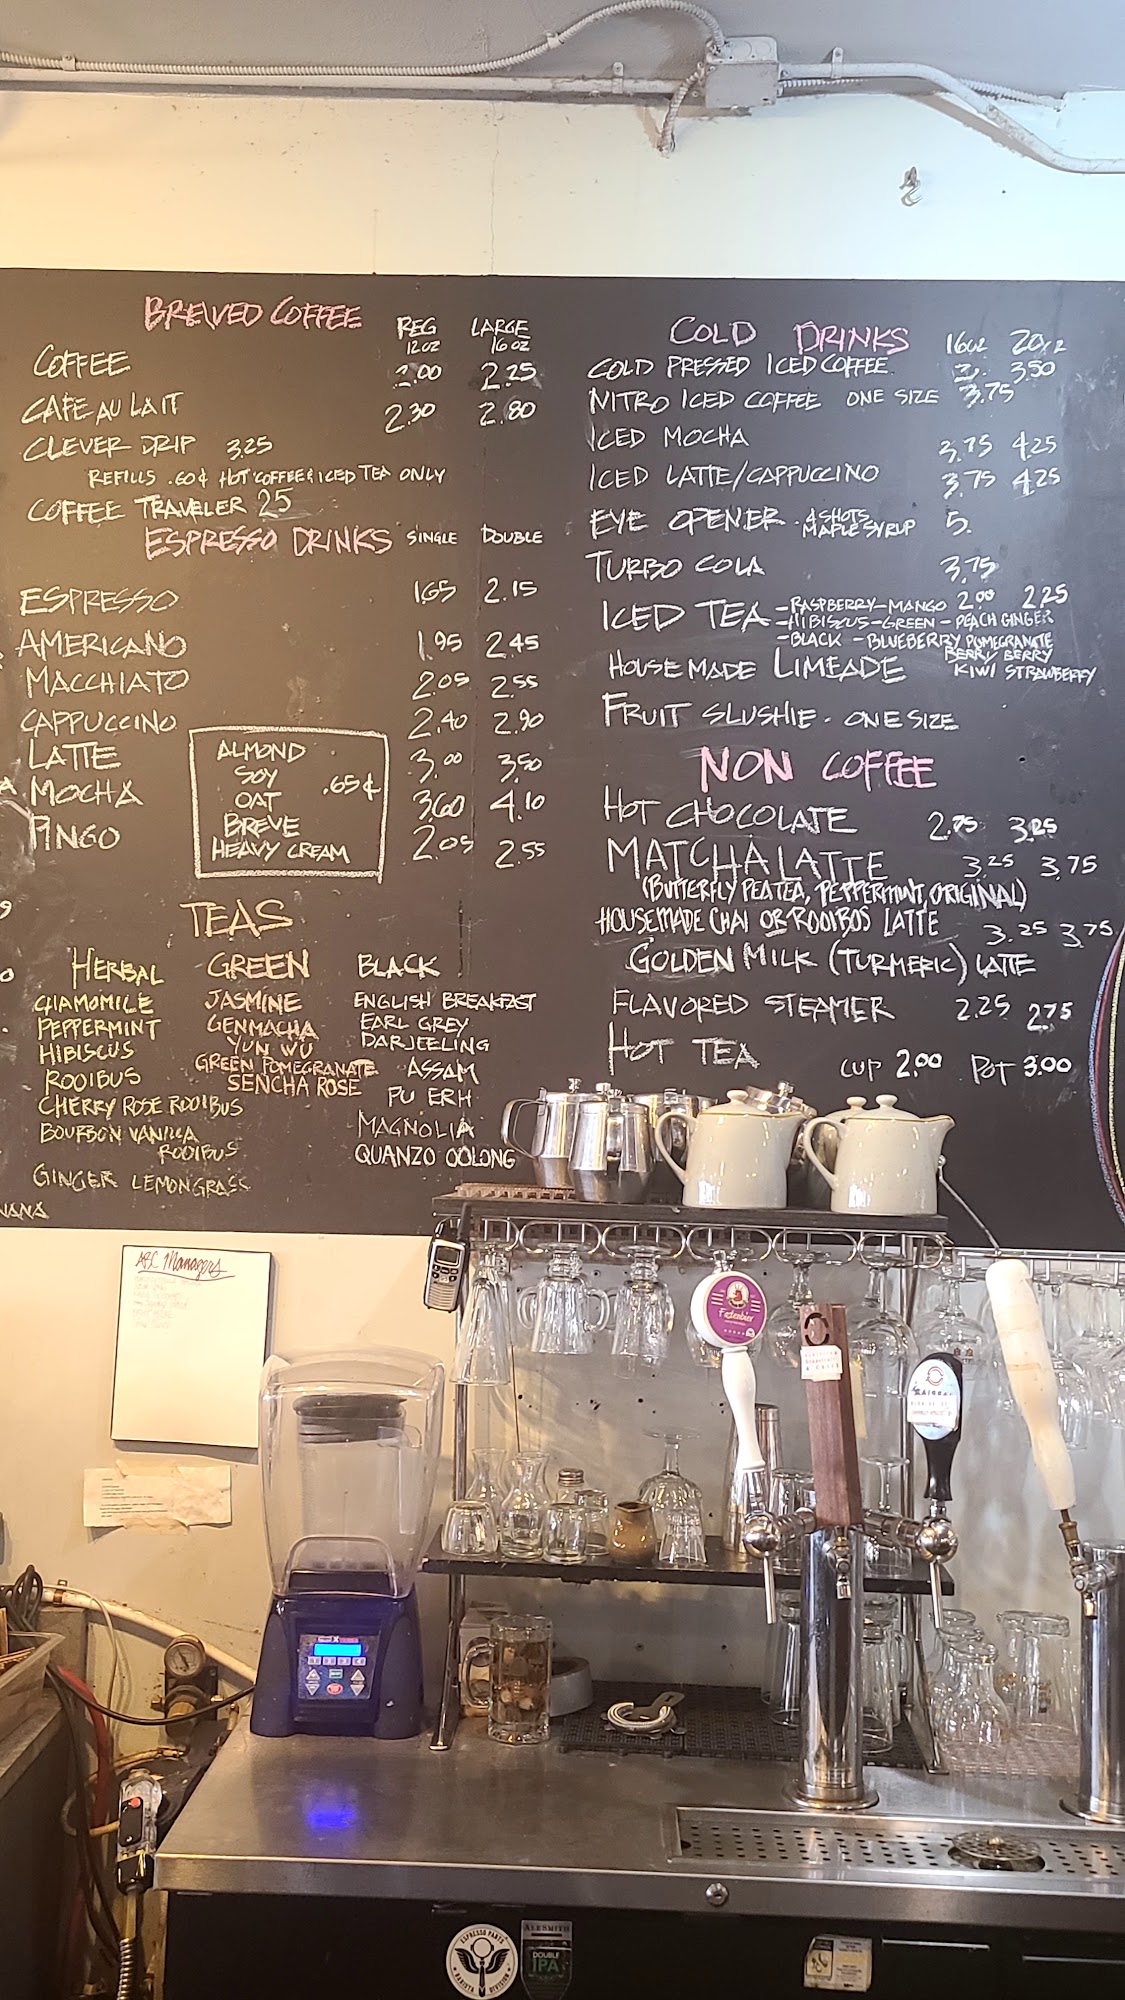 BREWED COFFEE REG LARGE
12 OZ 16 OZ
COFFEE 2.00 2.25
CAFE AU LAIT 2.30 2.80
CLEVER DRIP 3.25
REFILLS .60¢ HOT COFFEE & ICED TEA ONLY
COFFEE TRAVELER 25
ESPRESSO DRINKS SINGLE DOUBLE
ESPRESSO 1.65 2.15
AMERICANO 1.95 2.45
MACCHIATO 2.05 2.55
CAPPUCCINO 2.40 2.90
LATTE 3.00 3.50
MOCHA 3.60 4.10
PINGO 2.05 2.55
ALMOND
SOY .65¢
OAT
BREVE
HEAVY CREAM
TEAS
HERBAL
CHAMOMILE
PEPPERMINT
HIBISCUS
ROOIBUS
CHERRY ROSE ROOIBUS
BOURBON VANILLA
ROOIBUS
GINGER LEMONGRASS
GREEN
JASMINE
GENMACHA
YUN WU
GREEN POMEGRANATE
SENCHA ROSE
BLACK
ENGLISH BREAKFAST
EARL GREY
DARJEELING
ASSAM
PU ERH
MAGNOLIA
QUANZO OOLONG
COLD DRINKS 16OZ 20OZ
COLD PRESSED ICED COFFEE 3. 3.50
NITRO ICED COFFEE ONE SIZE 3.75
ICED MOCHA 3.75 4.25
ICED LATTE/CAPPUCCINO 3.75 4.25
EYE OPENER - 4 SHOTS 5.
MAPLE SYRUP
TURBO COLA 3.75
ICED TEA - RASPBERRY - MANGO 2.00 2.25
- HIBISCUS - GREEN - PEACH GINGER
- BLACK - BLUEBERRY POMEGRANATE
BERRY BERRY
HOUSEMADE LIMEADE KIWI STRAWBERRY
FRUIT SLUSHIE - ONE SIZE
NON COFFEE
HOT CHOCOLATE 2.75 3.25
MATCHA LATTE 3.25 3.75
(BUTTERFLY PEA TEA, PEPPERMINT, ORIGINAL)
HOUSEMADE CHAI OR ROOIBOS LATTE 3.25 3.75
GOLDEN MILK (TURMERIC) LATTE
FLAVORED STEAMER 2.25 2.75
HOT TEA CUP 2.00 POT 3.00
ABC Managers
Festenbier
ESPRESSO PARTS
BARISTA DIVISION
ALESMITH
DOUBLE
IPA